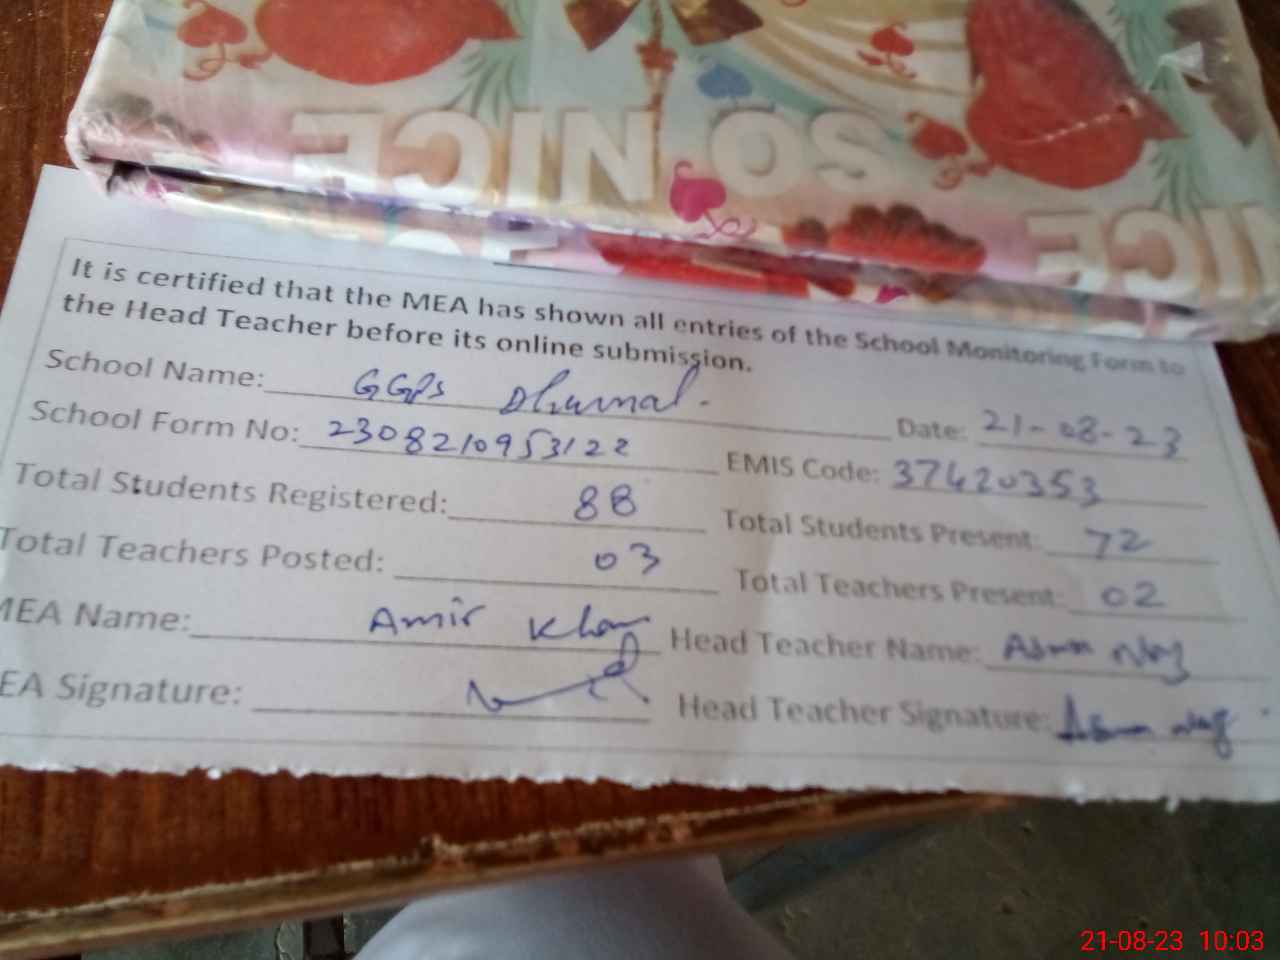 SO NICE
It is certified that the MEA has shown all entries of the School Monitoring Form to
the Head Teacher before its online submission.
School Name: GGPS Dhumal. Date: 21-08-23
School Form No: 2308210953122 EMIS Code: 37420353
Total Students Registered: 88 Total Students Present: 72
Total Teachers Posted: 03 Total Teachers Present: 02
MEA Name: Amir Khan Head Teacher Name:
EA Signature: Head Teacher Signature:
21-08-23 10:03